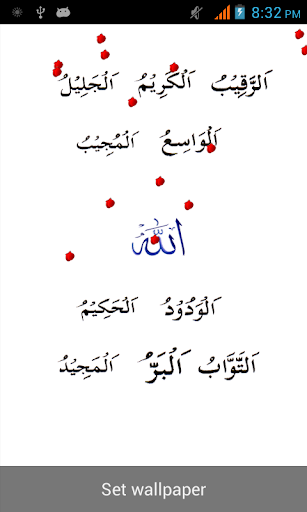 8:32 PM
اَلرَّقِيْبُ اَلْكَرِيْمُ اَلْجَلِيْلُ
اَلْوَاسِعُ اَلْمُجِيْبُ
الله
اَلْوَدُوْدُ اَلْحَكِيْمُ
اَلتَّوَّابُ اَلْبَرُّ اَلْمَجِيْدُ
Set wallpaper